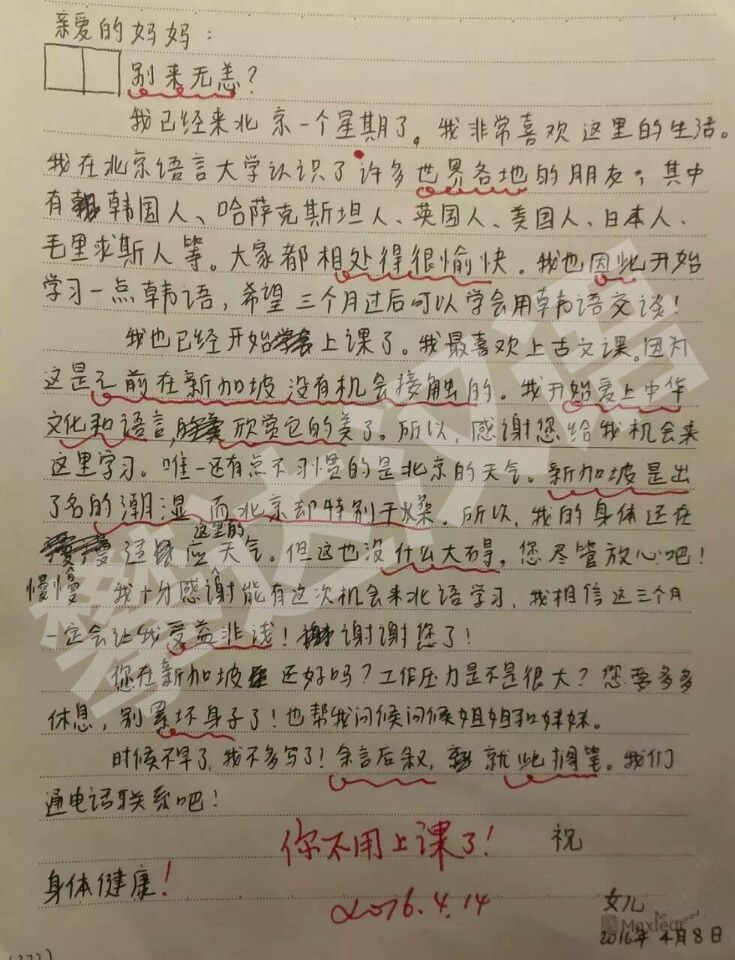 亲爱的妈妈：
别来无恙？
我已经来北京一个星期了。我非常喜欢这里的生活。
我在北京语言大学认识了许多世界各地的朋友，其中
有韩国人、哈萨克斯坦人、英国人、美国人、日本人、
毛里求斯人等。大家都相处得很愉快。我也因此开始
学习一点韩语，希望三个月过后可以学会用韩语交谈！
我也已经开始上课了。我最喜欢上古文课。因为
这是之前在新加坡没有机会接触的。我开始爱上中华
文化和语言，欣赏它的美了。所以，感谢您给我机会来
这里学习。唯一还有点不习惯的是北京的天气。新加坡是出
了名的潮湿，而北京却特别干燥。所以，我的身体还在
慢慢适应这里的天气。但这也没什么大不了，您尽管放心吧！
我十分感谢能有这次机会来北语学习，我相信这三个月
一定会让我受益非浅！谢谢您了！
您在新加坡还好吗？工作压力是不是很大？您要多多
休息，别累坏身子了！也帮我问候问候姐姐和妹妹。
时候不早了，我不多写了！余言后叙，就此搁笔。我们
通电话联系吧！
你不用上课了！ 祝
身体健康！
2016.4.14
女儿
2016年4月8日